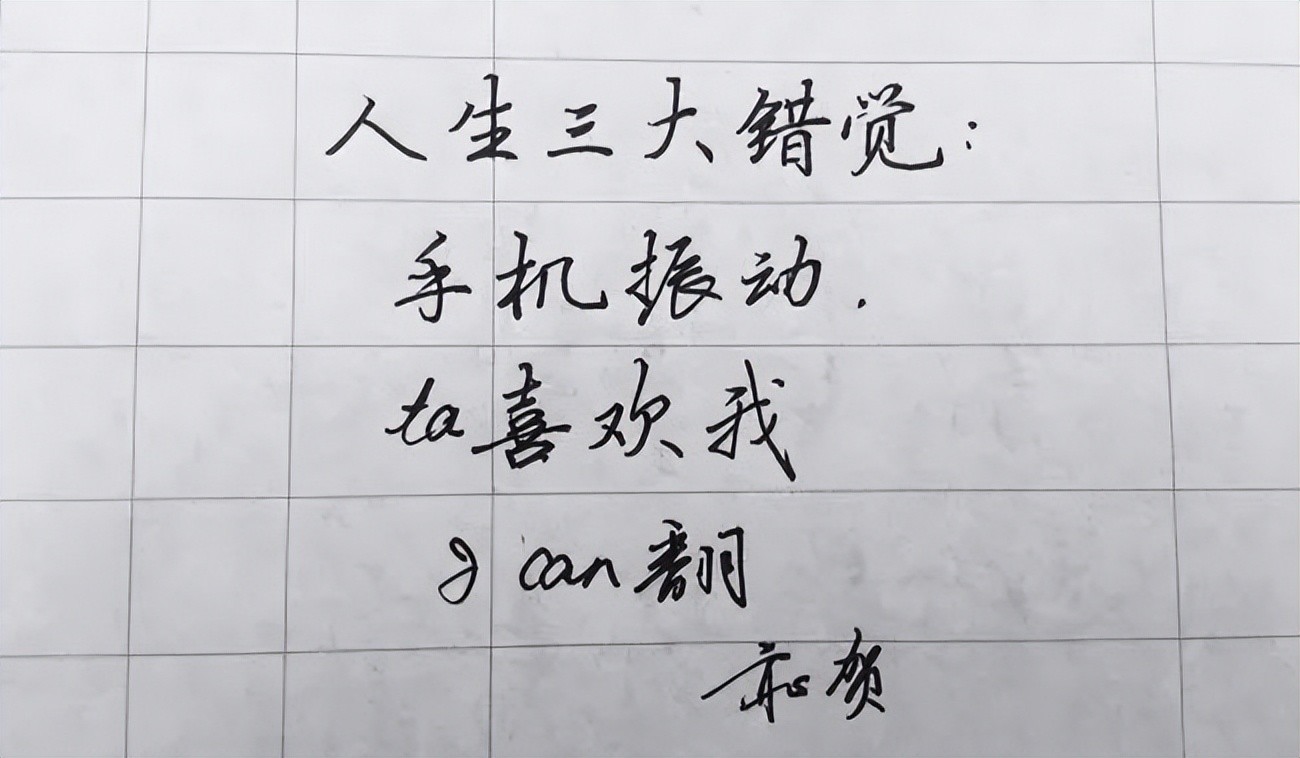 人生三大错觉：
手机振动.
ta喜欢我
I can翻
亦贺